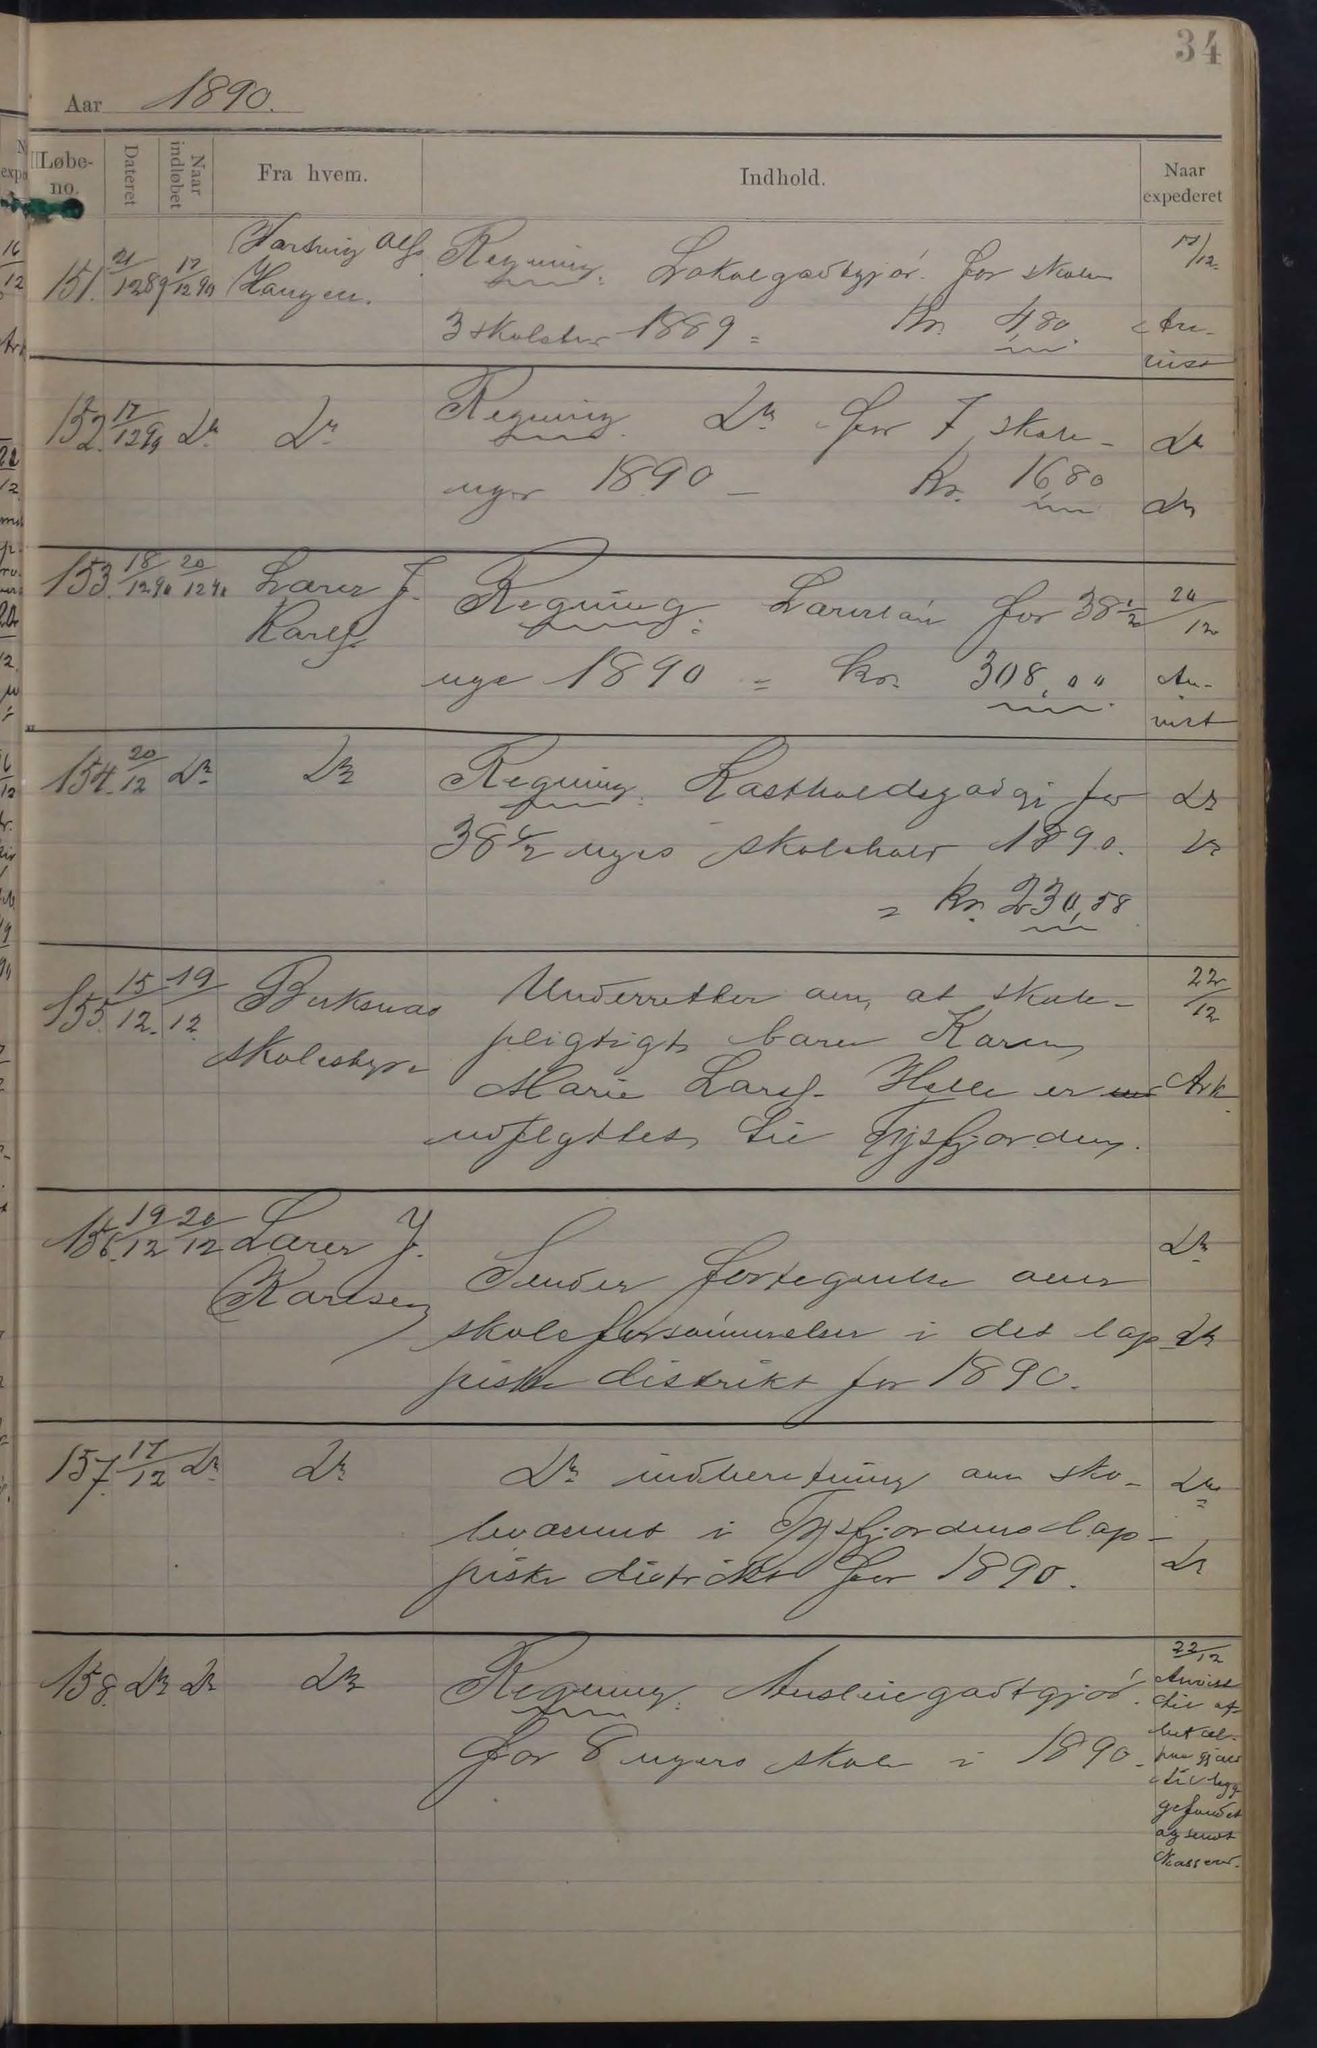 34
Aar 1890.
Løbe-
no.
Dateret
Naar
indløbet
Fra hvem.
Indhold.
Naar
expederet
151. 21/12 89 17/12 90 Hartvig Alfs
Haugen.
Regning. Lokalgodtgjør. for skolen
3 skoleter 1889 = Kr. 4,80
17/12
Anvist
152. 17/12 90 Do Do
Regning Do for 7 skole-
uger 1890 – Kr. 16,80
Do
Do
153. 18/12 90 20/12 90 Lærer J.
Karls.
Regning: Lærerløn for 38 1/2
uge 1890 = kr. 308,00
20/12
An-
vist
154. 20/12 Do Do
Regning. Kostholdsgodtgj for
38 1/2 uges skolehold 1890.
= kr. 230,58
Do
Do
155. 15/12 19/12
skolestyre
Underretter om, at skole-
pligtigt barn Karen
Marie Lars. Helle er
udflyttet til Tysfjorden.
22/12
Ark
156. 19/12 20/12 Lærer J.
Karlsen
Sender fortegnelse over
skoleforsømmelser i det lap
piske distrikt for 1890.
Do
Do
157. 17/12 Do Do
Do indberetning om sko-
levæsenet i Tysfjordens lap-
piske distrikt for 1890.
Do
Do
158. Do Do Do
Regning. Husleiegodtgjør.
for 8 ugers skole i 1890.
22/12
Anvist
til af-
betal.
paa gjæld
til bygge
gefondet
og sendt
Kasserer.